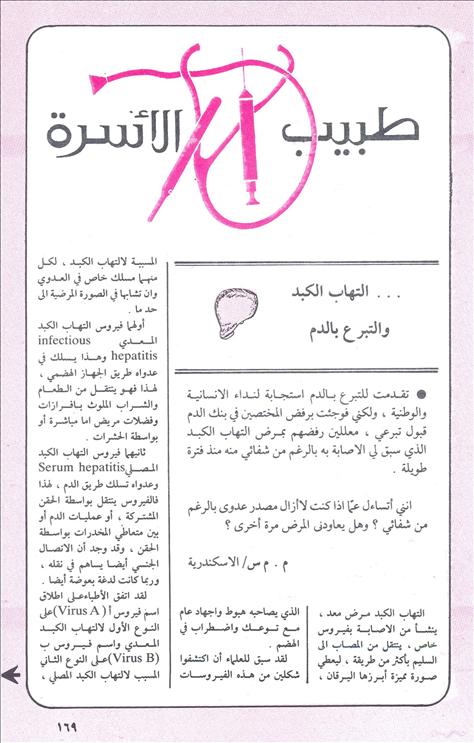 طبيب الأسرة
... التهاب الكبد
والتبرع بالدم
● تقدمت للتبرع بالدم استجابة لنداء الانسانية
والوطنية ، ولكني فوجئت برفض المختصين في بنك الدم
قبول تبرعي ، معللين رفضهم بمرض التهاب الكبد
الذي سبق لي الاصابة به بالرغم من شفائي منه منذ فترة
طويلة .
انني أتساءل عمّا اذا كنت لاأزال مصدر عدوى بالرغم
من شفائي ؟ وهل يعاودنى المرض مرة أخرى ؟
م . م س/ الاسكندرية
التهاب الكبد مرض معد ،
ينشأ من الاصابة بفيروس
خاص ، ينتقل من المصاب الى
السليم بأكثر من طريقة ، ليعطي
صورة مميزة أبرزها اليرقان ،
الذي يصاحبه هبوط واجهاد عام
مع توعك واضطراب في
الهضم .
لقد سبق للعلماء أن اكتشفوا
شكلين من هذه الفيروسات
المسببة لالتهاب الكبد ، لكل
منهما مسلك خاص في العدوي
وان تشابها في الصورة المرضية الى
حد ما .
أولهما فيروس التهاب الكبد
المعدي infectious
hepatitis وهذا يسلك في
عدواه طريق الجهاز الهضمي ،
لهذا فهو ينتقل من الطعام
والشراب الملوث بافرازات
وفضلات مريض اما مباشرة أو
بواسطة الحشرات .
ثانيهما فيروس التهاب الكبد
المصلي Serum hepatitis
وعدواه تسلك طريق الدم ، لهذا
فالفيروس ينتقل بواسطة الحقن
المشتركة ، أو عمليات الدم أو
بين متعاطي المخدرات بواسطة
الحقن ، وقد وجد أن الاتصال
الجنسي أيضا يساهم في نقله ،
وربما كانت لدغة بعوضة أيضا .
لقد اتفق الأطباء على اطلاق
اسم فيروس أ (Virus A) على
النوع الأول لالتهاب الكبد
المعدي واسم فيروس ب
(Virus B) على النوع الثاني
المسبب لالتهاب الكبد المصلي ،
١٦٩